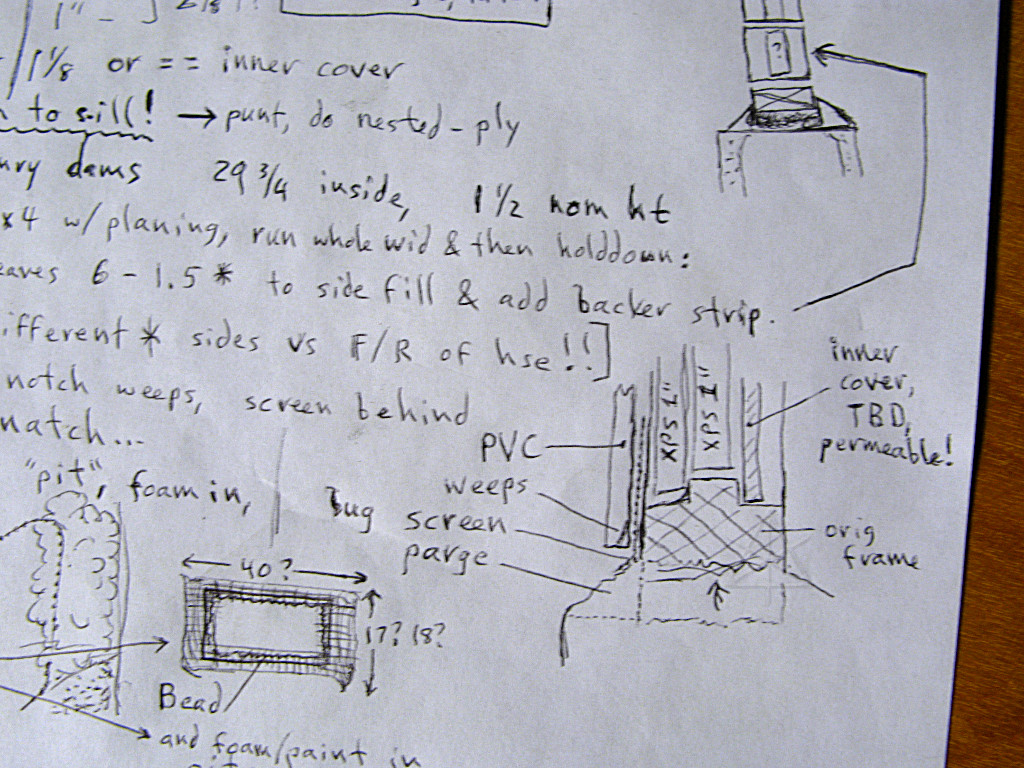 1" -
1 1/8 or == inner cover
to sill! → punt, do nested-ply
dams 29 3/4 inside, 1 1/2 nom ht
x4 w/ planing, run whole wid & then holddown:
eaves 6 - 1.5 * to side fill & add backer strip.
ifferent * sides vs F/R of hse!!]
notch weeps, screen behind
match...
"pit", foam in,
?
inner
cover,
TBD,
permeable!
1" SPX
1" SPX
PVC
weeps
Bug screen
parge
orig
frame
40?
17? 18?
Bead
and foam/paint in